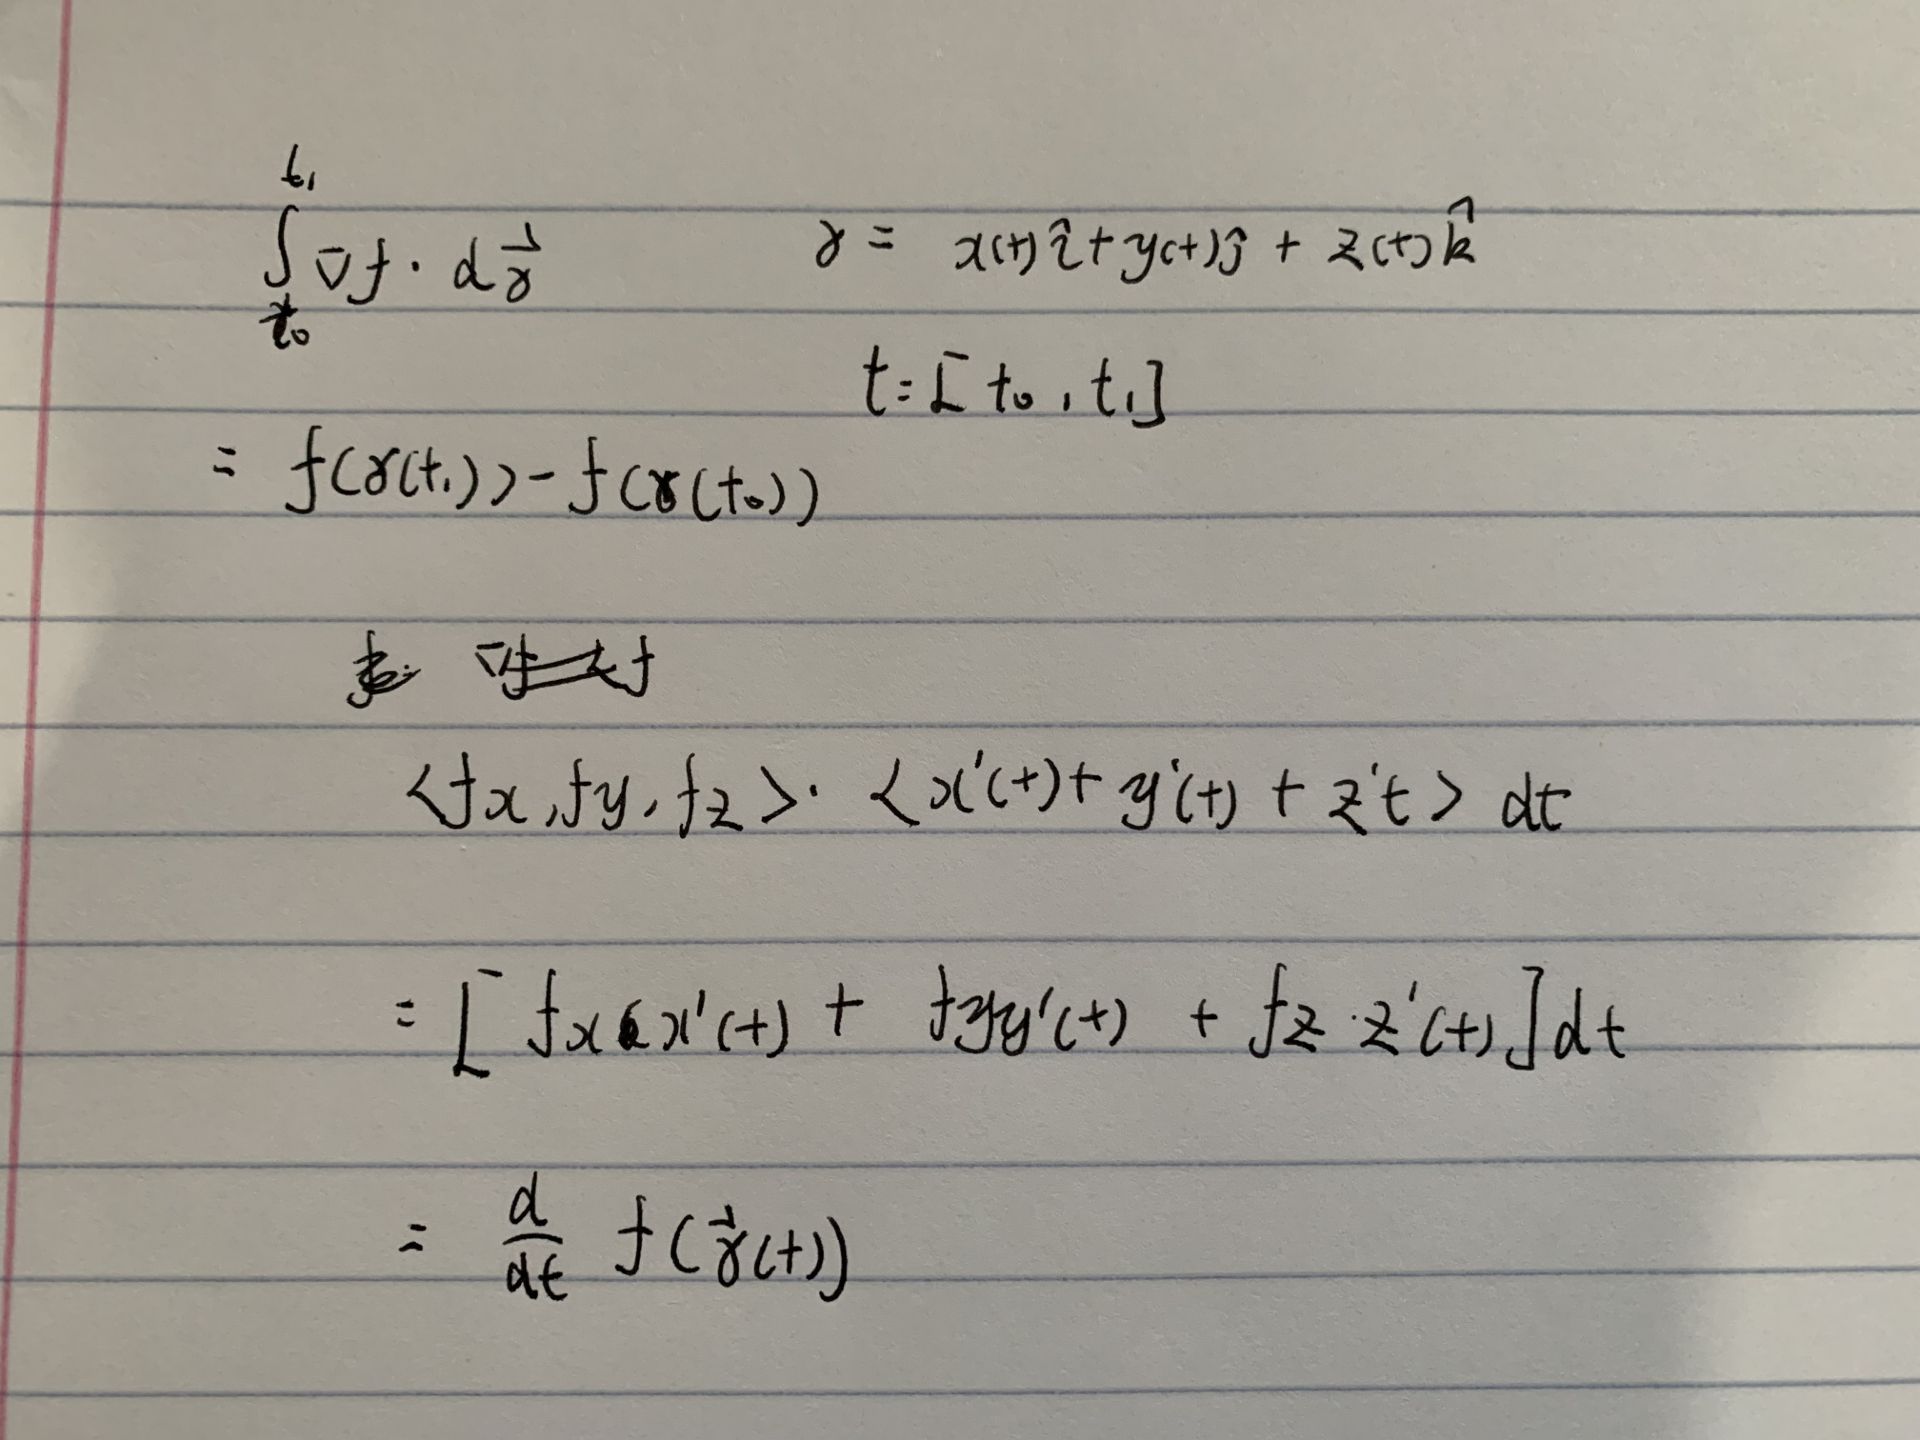 ∫_{t₀}^{t₁} ∇f · dr⃗    r = x(t)î + y(t)ĵ + z(t)k̂
t = [t₀, t₁]
= f(r(t₁)) - f(r(t₀))
<fx, fy, fz> · <x'(t) + y'(t) + z't> dt
= [fx x'(t) + fy y'(t) + fz · z'(t)] dt
= d/dt f(r⃗(t))